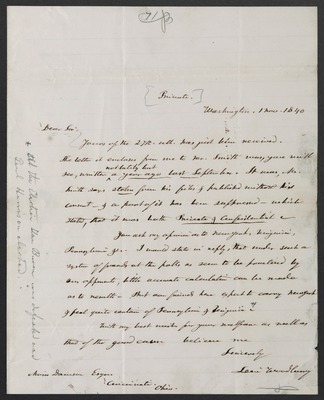 [Private.]
Washington, 1 Nov. 1840
Dear Sir,
Yours of the 27th ult. was just been received.
The letter it encloses from me to Mr. Smith was, you will
not lately but
see, written a year ago last September. It was, Mr.
Smith says stolen from his files & published without his
consent - & a part of it has been suppressed - which
states, that it was both Private & Confidential
You ask my opinion as to New York, Virginia,
Pennsylvania &c. I would state in reply, that under such a
system of frauds at the polls as seem to be practised by
our opponents, little accurate calculation can be made
as to results - But our friends here expect to carry New York
& feel quite certain of Pennsylvania & Virginia
With my best wishes for your welfare as well as
that of the good cause believe me
Sincerely
Levi Woodbury
Moses Dawson Esqr
Cincinnati
Ohio.
at the Election Van Buren was defeated and
Genl Harrison elected.